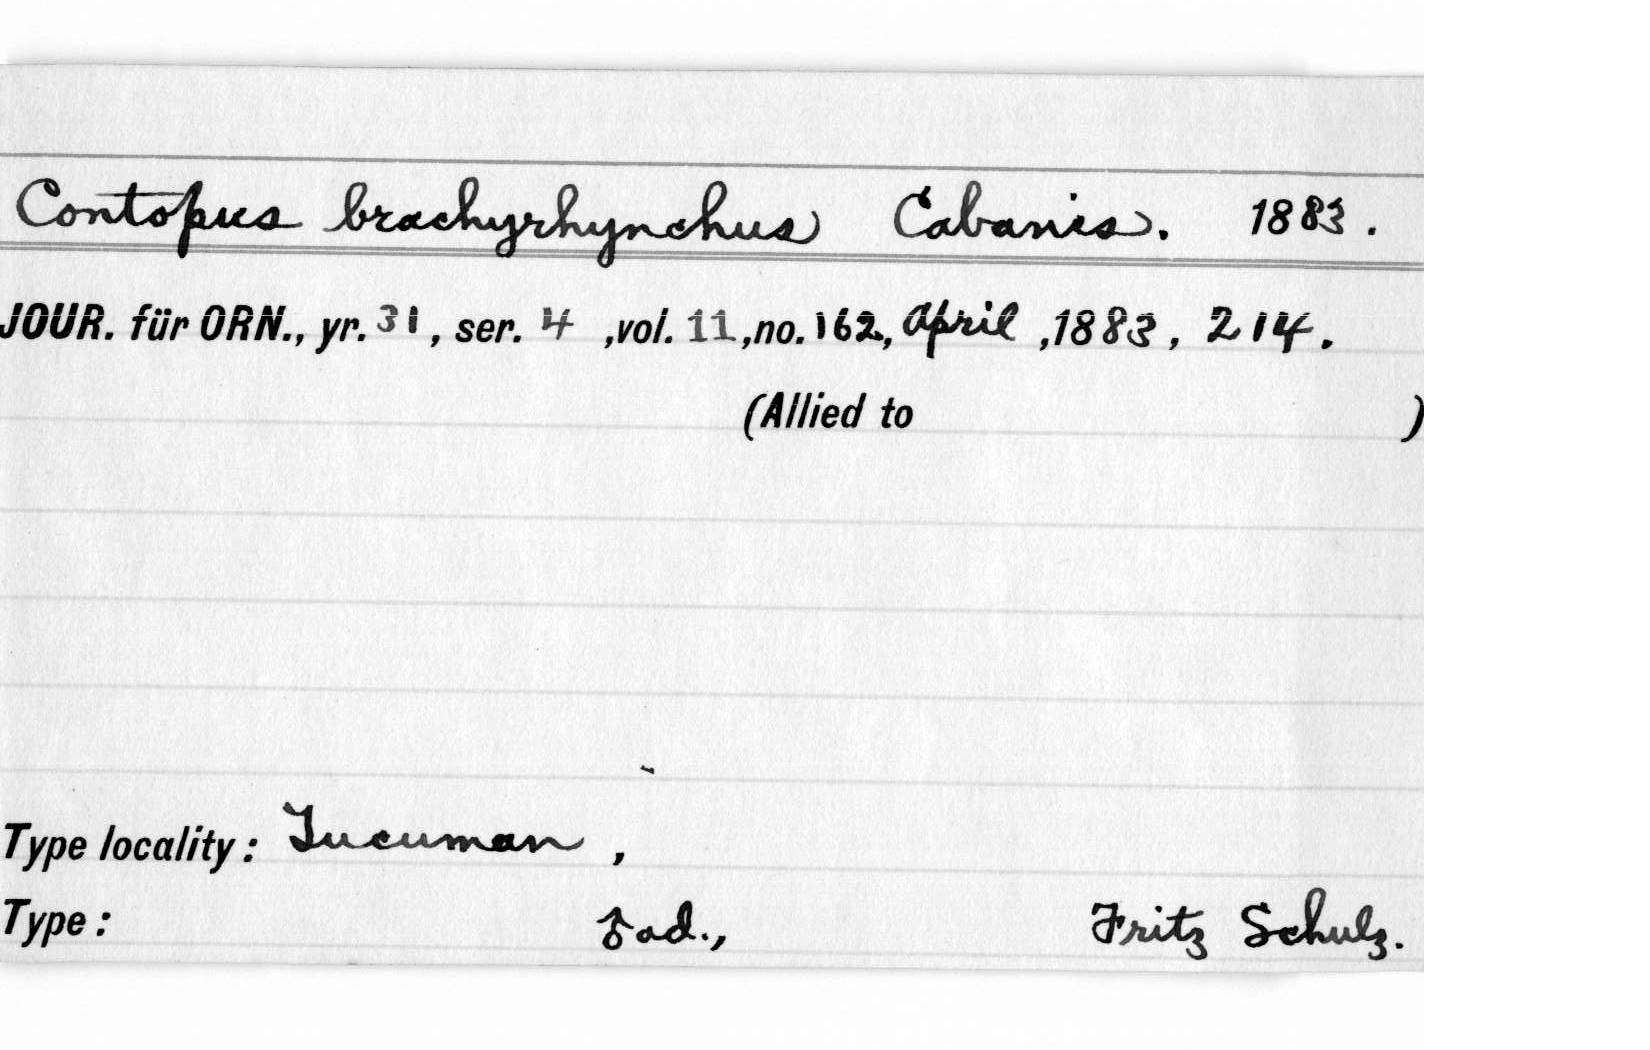 Contopus brachyrhynchus Cabanis. 1883.
JOUR. für ORN., yr. 31, ser. 4, vol. 11, no. 162, April, 1883, 214.
(Allied to )
Type locality: Tucuman,
Type: ♂ ad., Fritz Schulz.